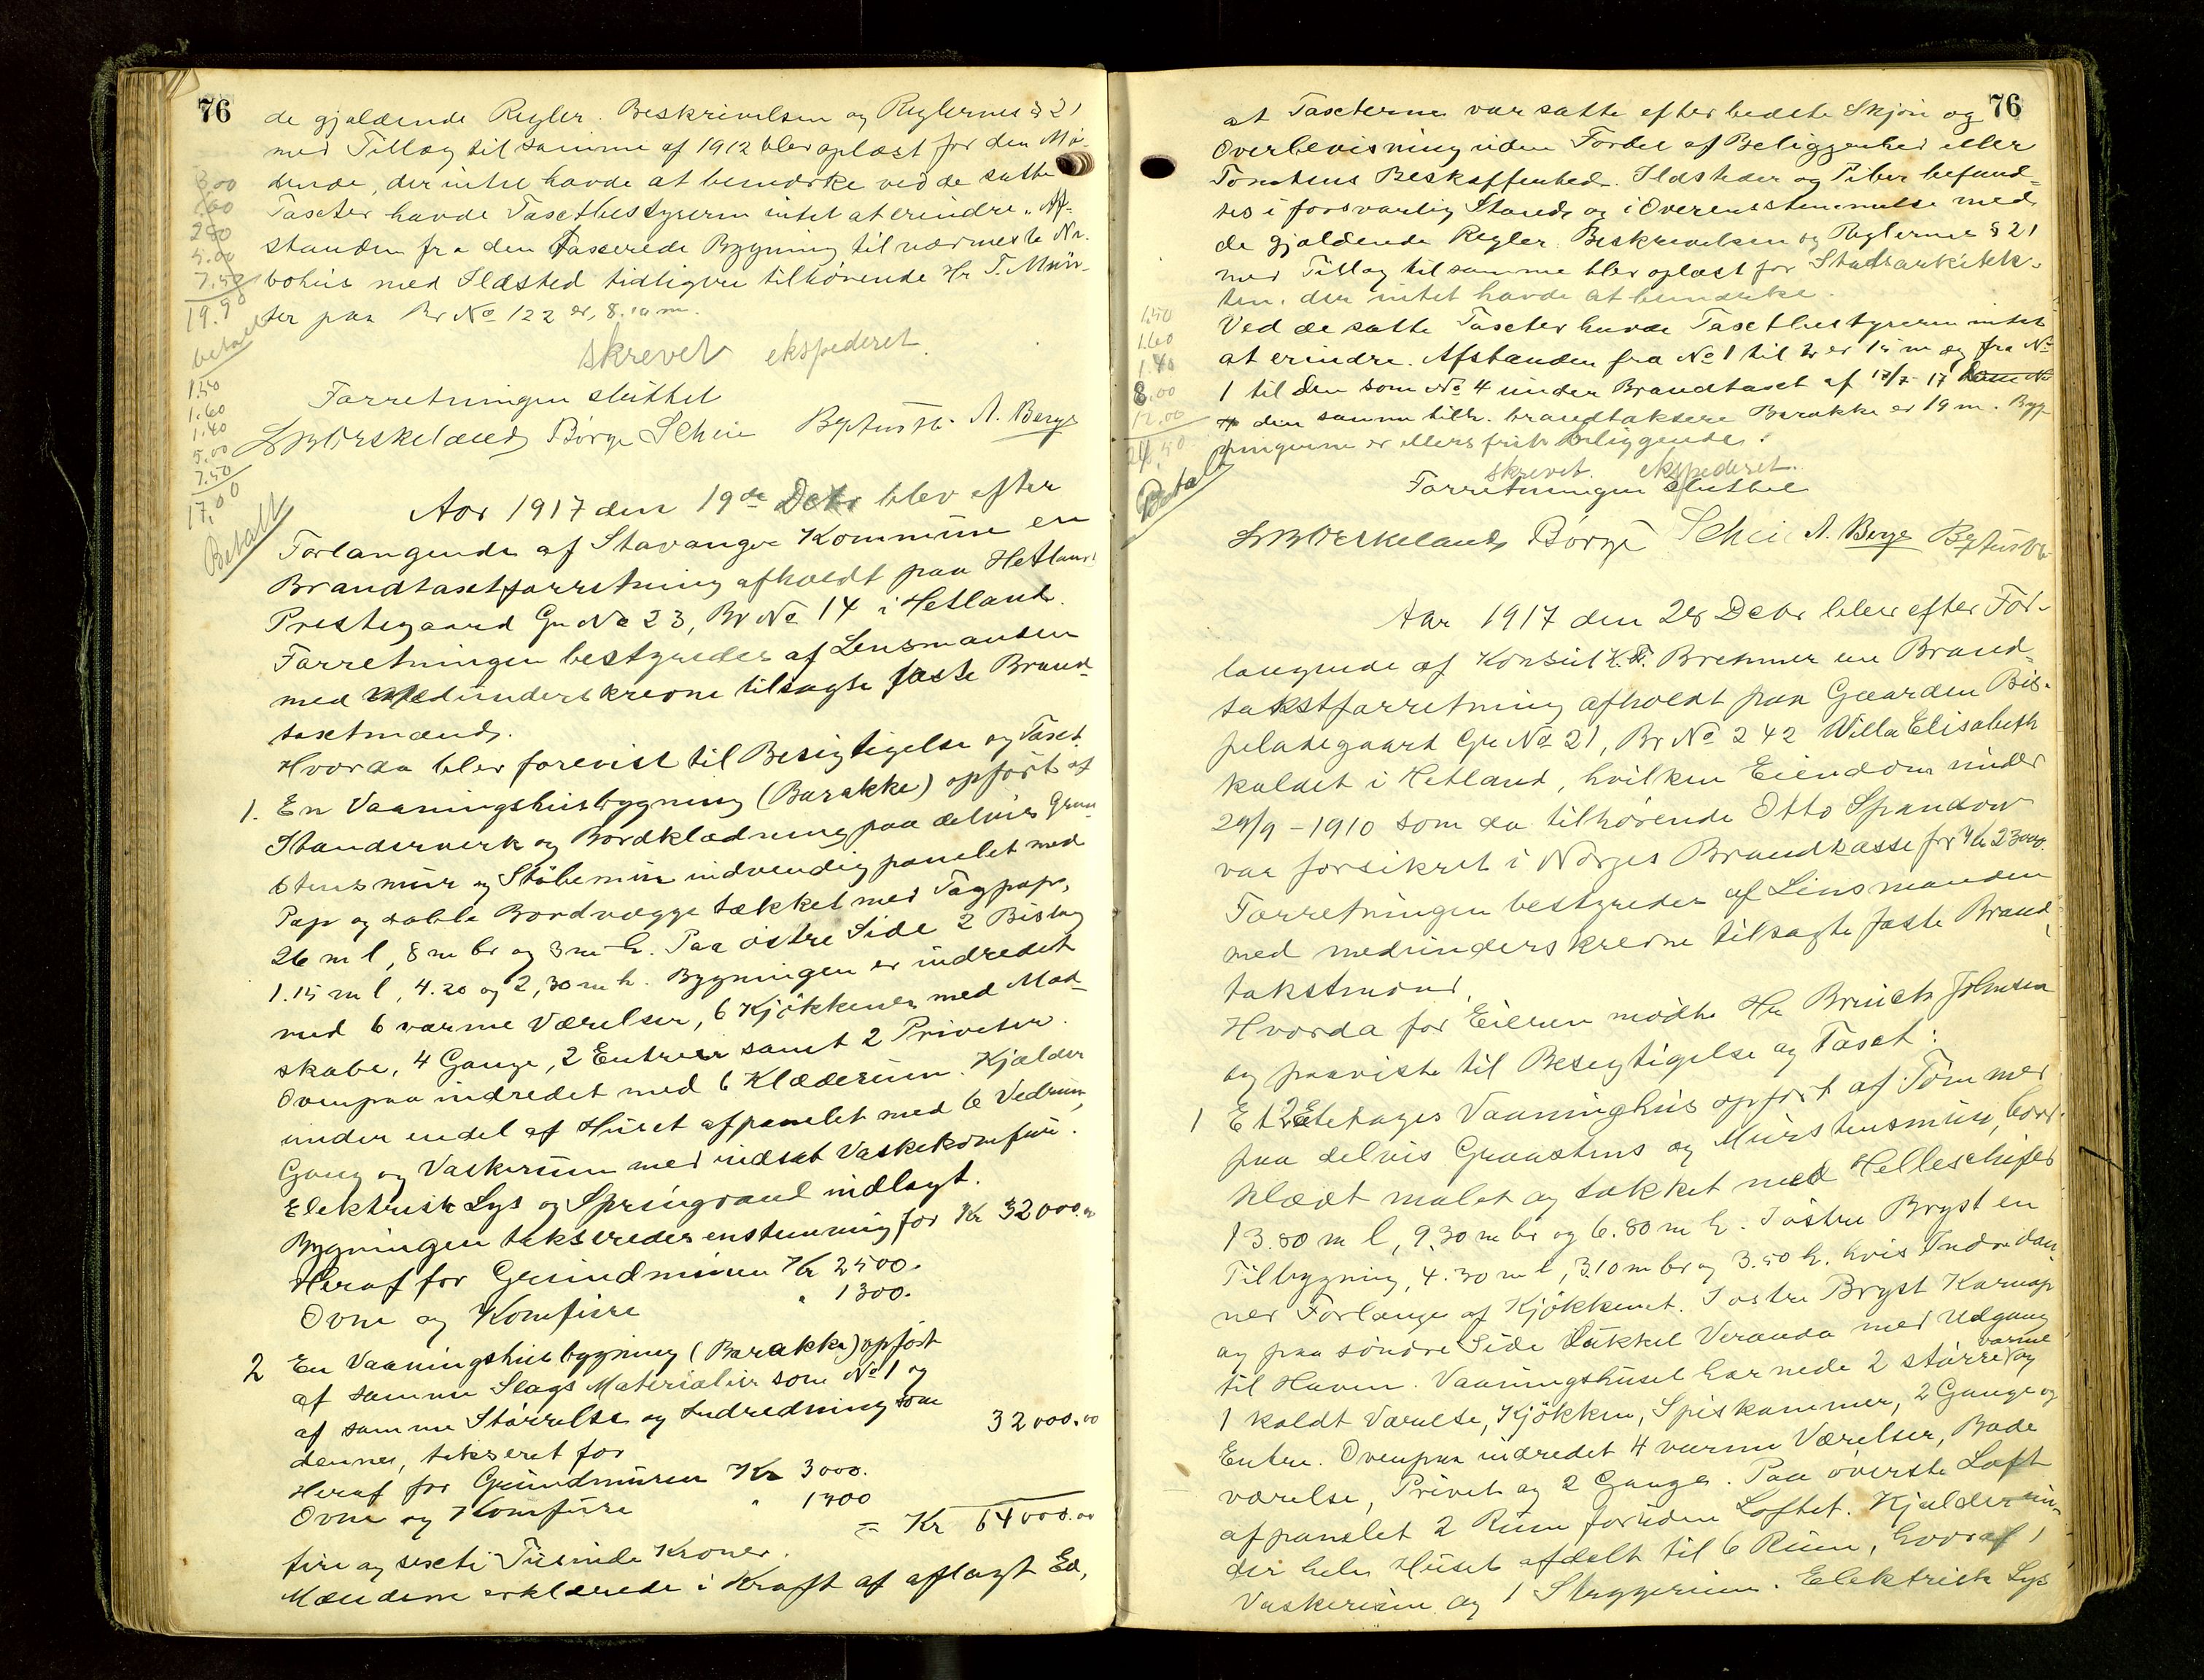 76
de gjældende Regler. Beskrivelsen og Reglernes § 21
med Tillæg til samme af 1912 blev oplæst for den Mø-
dende, der intet havde at bemærke ved de satte
Taxter havde Taxtbestyreren intet at erindre. Af-
standen fra den Taxerede Bygning til nærmeste Na-
bohus med Ildsted tidligere tilhørende Hr T. Mün-
ter paa Br No 122 er, 8.10 m.
skrevet ekspederet
Forretningen sluttet
Børge Scheie A. Berge
2.80
5.00
7.50
19.90
betalt
1.50
1.60
1.40
5.00
7.50
17,00
Betalt
Aar 1917 den 19de Debr blev efter
Forlangende af Stavanger Kommune en
Brandtaxtforretning afholdt paa Hetland
Prestegaard Gr No 23, Br No 14 i Hetland.
Forretningen bestyredes af Lensmanden
med medunderskrevne tilsagte faste Brand-
taxtmænd.
Hvorda blev forevist til Besigtigelse og Taxt
1. En Vaaningshusbygning (Barakke) opført af
Standerverk og Bordklædning paa delvis Graa-
stensmur og Støbemur indvendig panelet med
Pap og doble Bordvægge tækket med Tagpap,
26 m l, 8 m br og 3 m h. Paa østre Side 2 Bislag
1.15 m l, 4.20 og 2,30 m h. Bygningen er indredet
med 6 varme Værelser, 6 Kjøkkener med Mad-
skabe, 4 Gange, 2 Entreer samt 2 Priveter.
Ovenpaa indredet med 6 Klæderum. Kjælder
under endel af Huset afpanelet med 6 Vedrum,
Gang og Vaskerum med indsat Vaskekomfur.
Elektrisk Lys og Springvand indlagt.
Bygningen takseredes enstemmig for Kr 32000.00
Heraf for Grundmuren Kr 2500.
Ovne og Komfure " 1300.
2 En Vaaningshusbygning (Barakke) opført
af samme Slags Materialier som No 1 og
af samme Størrelse og Indredning som
dennes, takseret for 32000.00
Heraf for Grundmuren Kr 3000.
Ovne og Komfure " 1300
= Kr 64000.00
fire og sexti Tusinde Kroner.
Mændene erklærede i Kraft af aflagt Ed,
76
at Taxterne var satte efter bedste Skjøn og
Overbevisning uden Fordel af Beliggenhed eller
Tomtens Beskaffenhed. Ildsteder og Piber befand-
tes i forsvarlig Stand og i Overensstemmelse med
de gjældende Regler. Beskrivelsen og Reglernes § 21
med Tillæg til samme blev oplæst for Stadsarkitek-
ten, der intet havde at bemærke.
Ved de satte Taxter havde Taxtbestyreren intet
at erindre. Afstanden fra No 1 til 2 er 15 m og fra No
1 til den som No 4 under Brandtaxt af 17/7 17
den samme tilh. brandtaksere Barakke er 19 m. Byg-
ningerne er ellers frit beliggende.
skrevet. ekspederet.
Forretningen sluttet
Børge Scheie A. Berge
1.50
1.60
1.40
8.00
12.00
24,50
Betalt
Aar 1917 den 28 Debr blev efter For-
langende af Konsul Bremer en Brand-
takstforretning afholdt paa Gaarden Bis-
peladegaard Gr No 21, Br No 242 Villa Elisabeth
kaldet i Hetland, hvilken Eiendom under
29/9-1910 som da tilhørende Otto Spandow
var forsikret i Norges Brandkasse for Kr 23000.
Forretningen bestyredes af Linsmanden
med medunderskrevne tilsagte faste Brand-
takstmænd,
Hvorda for Eieren mødte Hr Bruch Johnsen
og paaviste til Besegtigelse og Taxt:
1 Et 2 Etehages Vaaninghus opført af Tømmer
paa delvis Graastens og Murstensmur, bord-
klædt malet og tækket med Helleschifer
13.80 m l, 9.30 m br og 6.80 m h. I østre Bryst en
Tilbygning, 4.30 m l, 3.10 m br og 3.50 h. hvis Indre dan-
ner Forlænge af Kjøkkenet. I østre Bryst Karnap
og paa søndre Side lukket Veranda med Udgang
til Haven. Vaaningshuset har nede 2 større varme og
1 koldt Værelse, Kjøkken, Spiskammer, 2 Gange og
Entre. Ovenpaa indredet 4 varme Værelser, Bade
værelse, Privet og 2 Gange. Paa øverste Loft
afpanelet 2 Rum foruden Loftet. Kjælder un-
der hele Huset afdelt til 6 Rum, hvoraf 1
Vaskerum og 1 Stryggerum. Elektrisk Lys